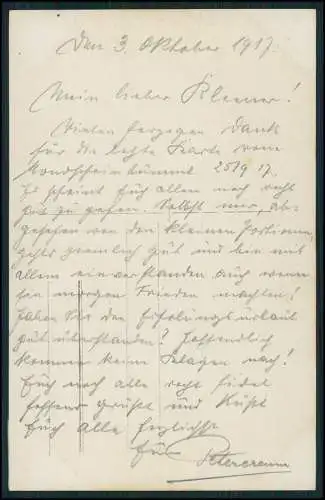 Den 3. Oktober 1917.
Mein lieber Kleener!
Vielen herzigen Dank
für die letzte Karte vom
Mondscheinbummel 25/9 17.
Es scheint Euch allen noch recht
gut zu gehen. Selbst mir, ab-
gesehen von den kleinen Portionen,
gehts ziemlich gut und bin mit
allem einverstanden auch wenn
sie morgen Frieden machten!
Haben Sie den Erholungsurlaub
gut überstanden? Hoffentlich
kommen keine Klagen nach!
Euch noch alle recht fidel
hoffend grüßt und küßt
Euch alle herzlichst
Euer